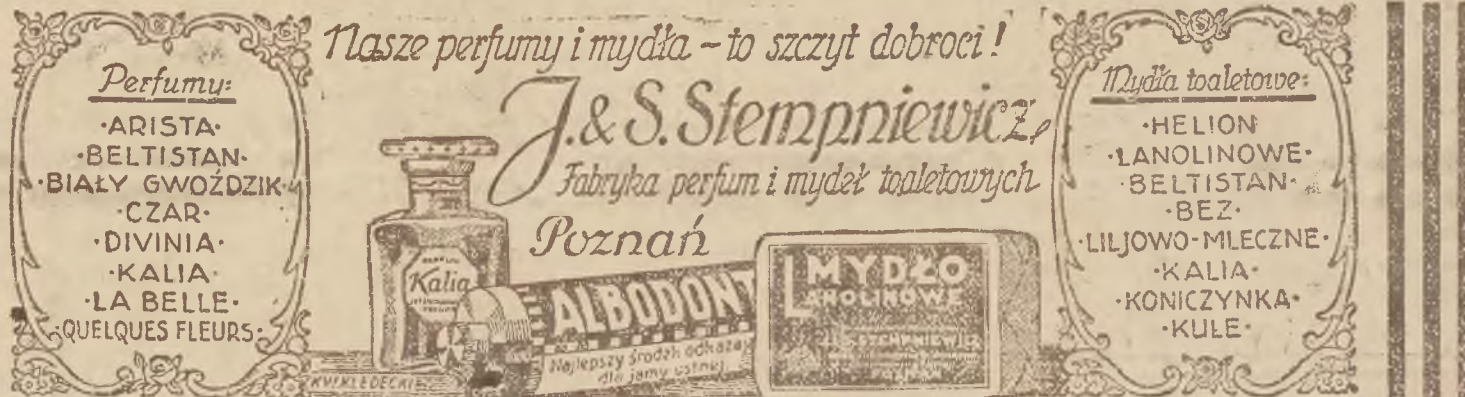 Perfumy:
·ARISTA·
·BELTISTAN·
·BIAŁY GWOŹDZIK·
·CZAR·
·DIVINIA·
·KALIA·
·LA BELLE·
·QUELQUES FLEURS·
Nasze perfumy i mydła – to szczyt dobroci!
J. & S. Stempniewicz,
Fabryka perfum i mydeł toaletowych
Poznań
Kalia
ALBODONT
Najlepszy środek odkażaj.
dla jamy ustnej
MYDŁO
LANOLINOWE
J.&S. STEMPNIEWICZ
Mydła toaletowe:
·HELION
·LANOLINOWE·
·BELTISTAN·
·BEZ·
·LILJOWO-MLECZNE·
·KALIA·
·KONICZYNKA·
·KULE·